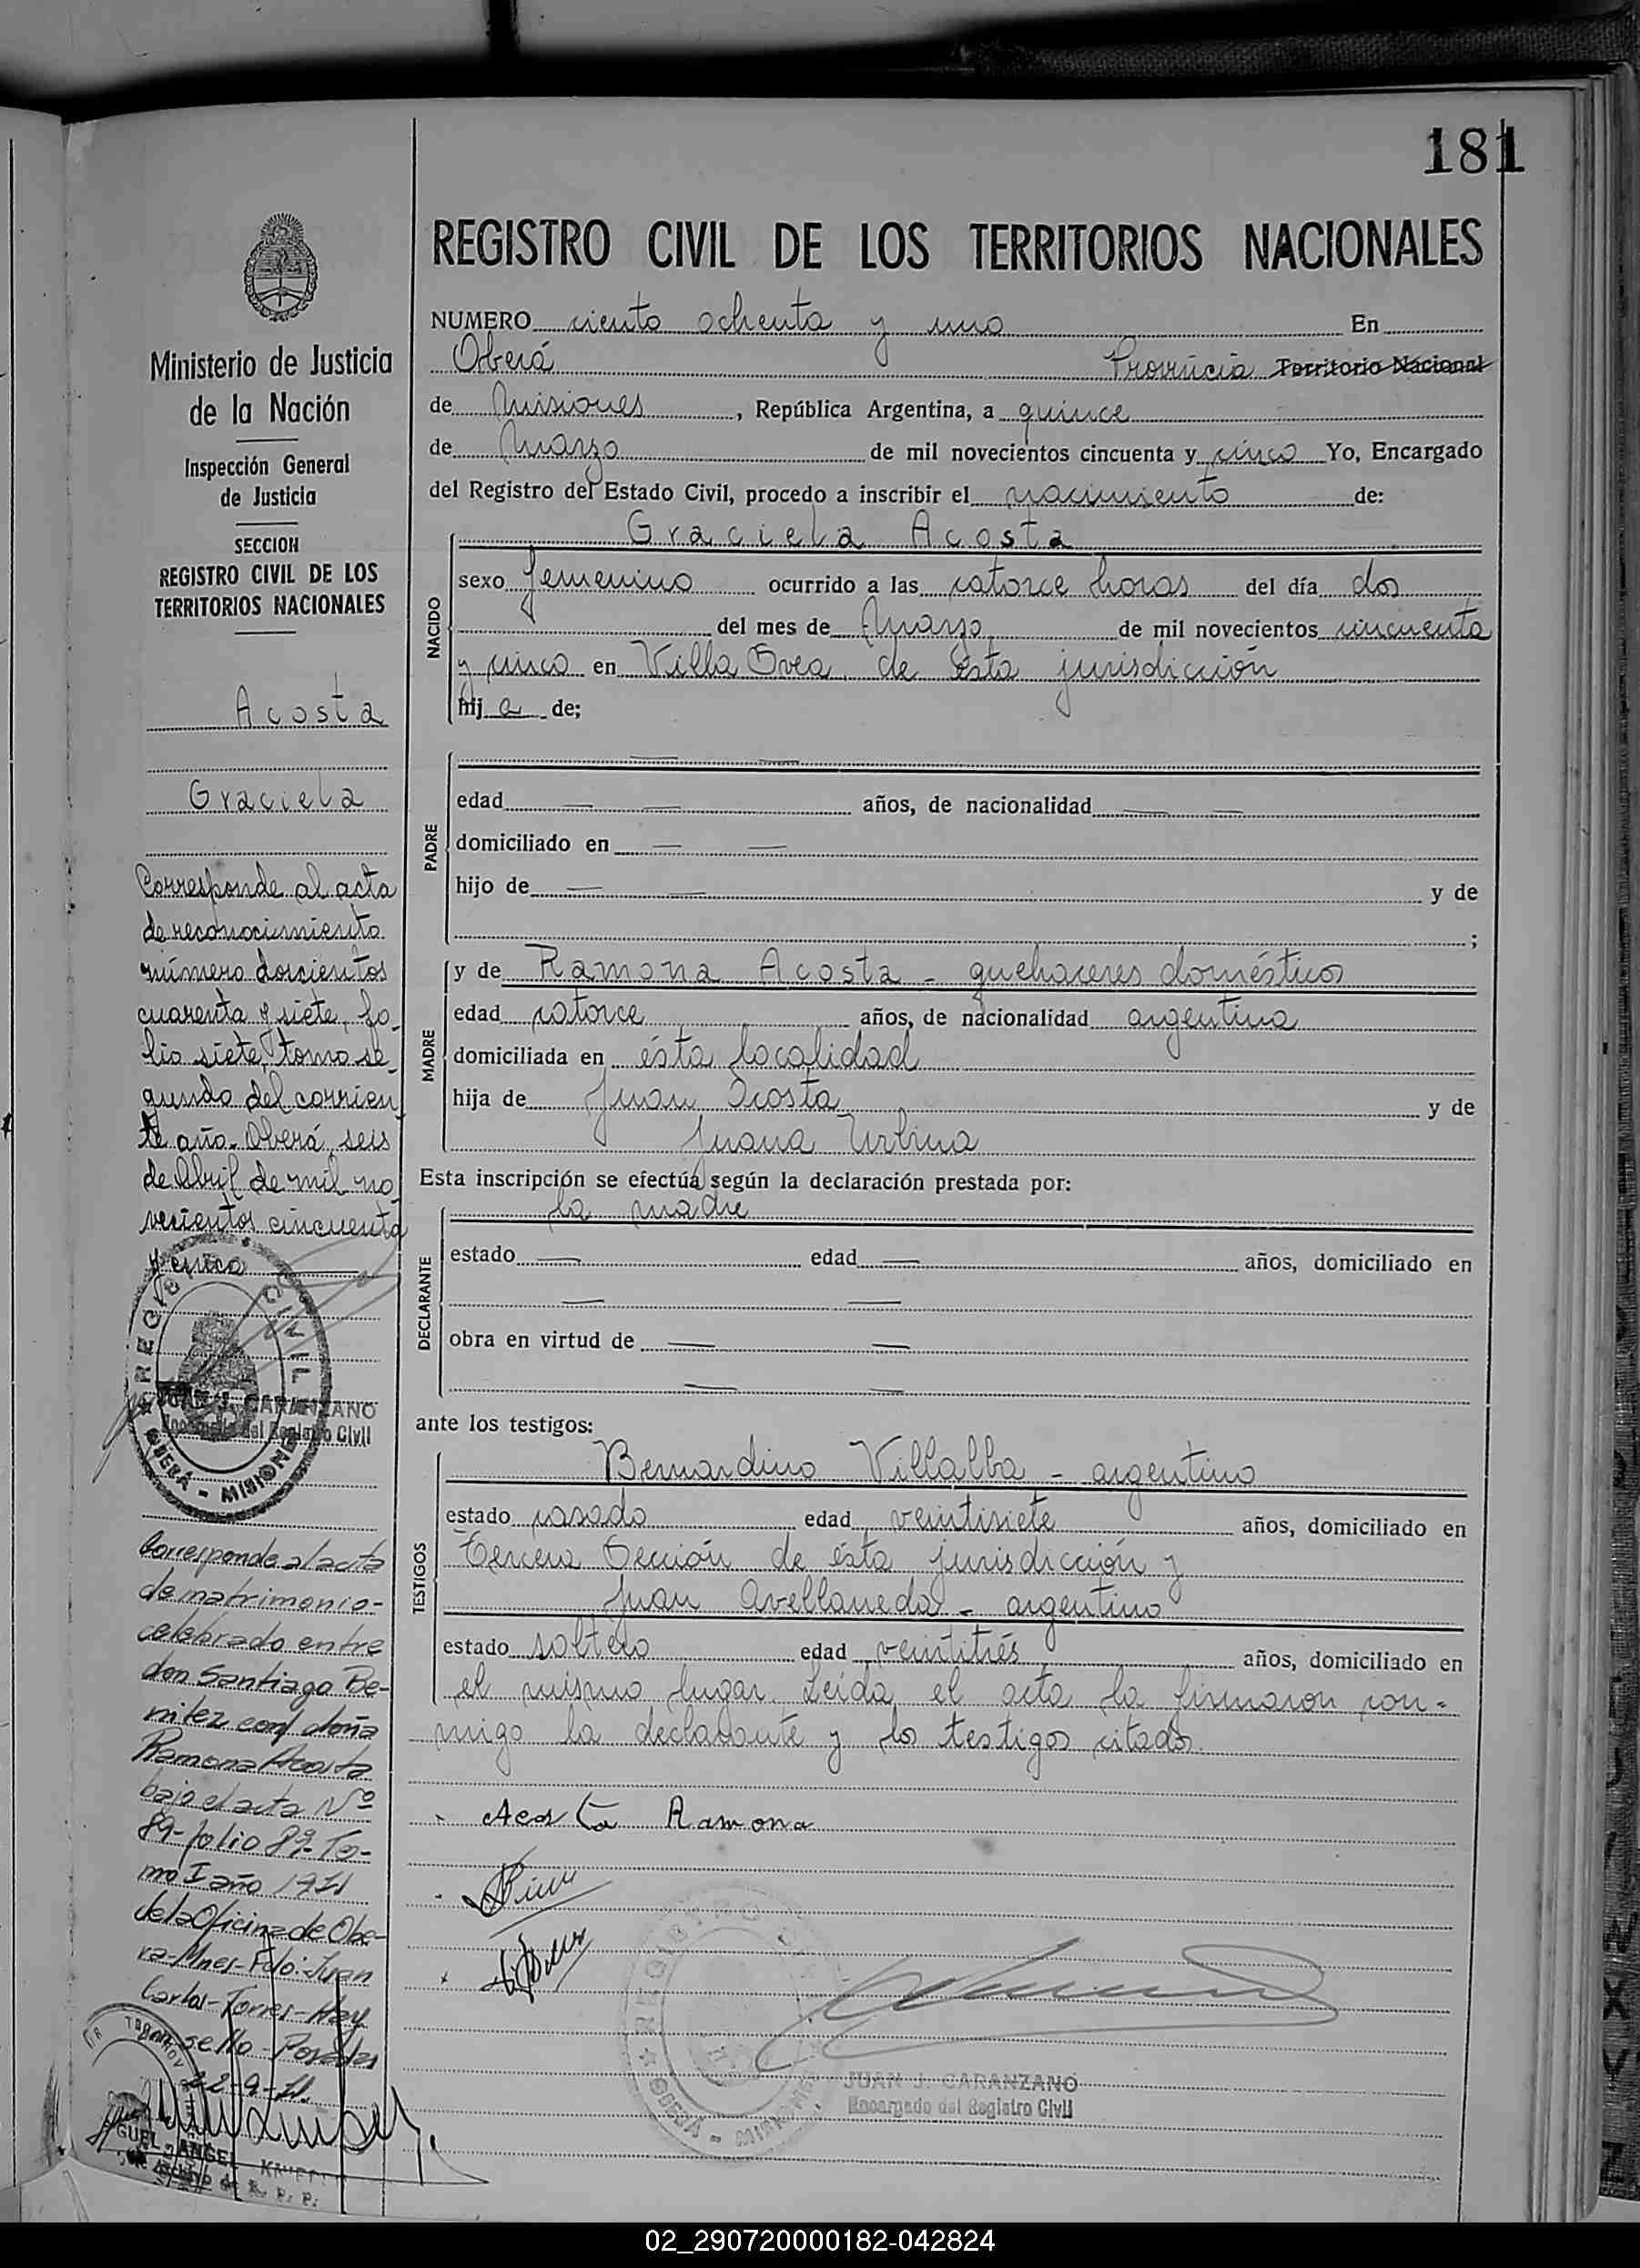 181
REGISTRO CIVIL DE LOS TERRITORIOS NACIONALES
NUMERO ciento ochenta y uno En
Oberá Provincia Territorio Nacional
de Misiones, República Argentina, a quince
de Marzo de mil novecientos cincuenta y cinco Yo, Encargado
del Registro del Estado Civil, procedo a inscribir el nacimiento de:
NACIDO
Graciela Acosta
sexo femenino ocurrido a las catorce horas del día dos
del mes de Marzo de mil novecientos cincuenta
y cinco en Villa Svea de ésta jurisdicción
hij a de;
PADRE
edad años, de nacionalidad
domiciliado en
hijo de y de
;
MADRE
y de Ramona Acosta - quehaceres domésticos
edad catorce años, de nacionalidad argentina
domiciliada en ésta localidad
hija de Juan Acosta y de
Juana Urbina
Esta inscripción se efectúa según la declaración prestada por:
DECLARANTE
la madre
estado edad años, domiciliado en
obra en virtud de
ante los testigos:
TESTIGOS
Bernardino Villalba - argentino
estado casado edad veintisiete años, domiciliado en
Tercera Sección de ésta jurisdicción y
Juan Avellaneda - argentino
estado soltero edad veintitrés años, domiciliado en
el mismo lugar. Leída el acta la firmaron con-
migo la declarante y los testigos citados.
Acosta Ramona
REGISTRO CIVIL
OBERÁ - MISIONES
JUAN J. CARANZANO
Encargado del Registro Civil
Ministerio de Justicia
de la Nación
Inspección General
de Justicia
SECCION
REGISTRO CIVIL DE LOS
TERRITORIOS NACIONALES
Acosta
Graciela
Corresponde al acta
de reconocimiento
número doscientos
cuarenta y siete, fo-
lio siete, tomo se-
gundo del corrien-
te año. Oberá, seis
de Abril de mil no-
vecientos cincuenta
y cinco
REGISTRO CIVIL
OBERÁ - MISIONES
JUAN J. CARANZANO
Encargado del Registro Civil
Corresponde al acta
de matrimonio-
celebrado entre
don Santiago Be-
nitez con doña
Ramona Acosta
bajo el acta Nº
89-folio 89-To-
mo I año 1971
de la Oficina de Obe-
ra-Mnes-Fdo: Juan
Carlos-Torres-Hay
sello-Posadas
22-9-71.
GUEL ANGEL
Archivo de R. P. P.
02_290720000182-042824